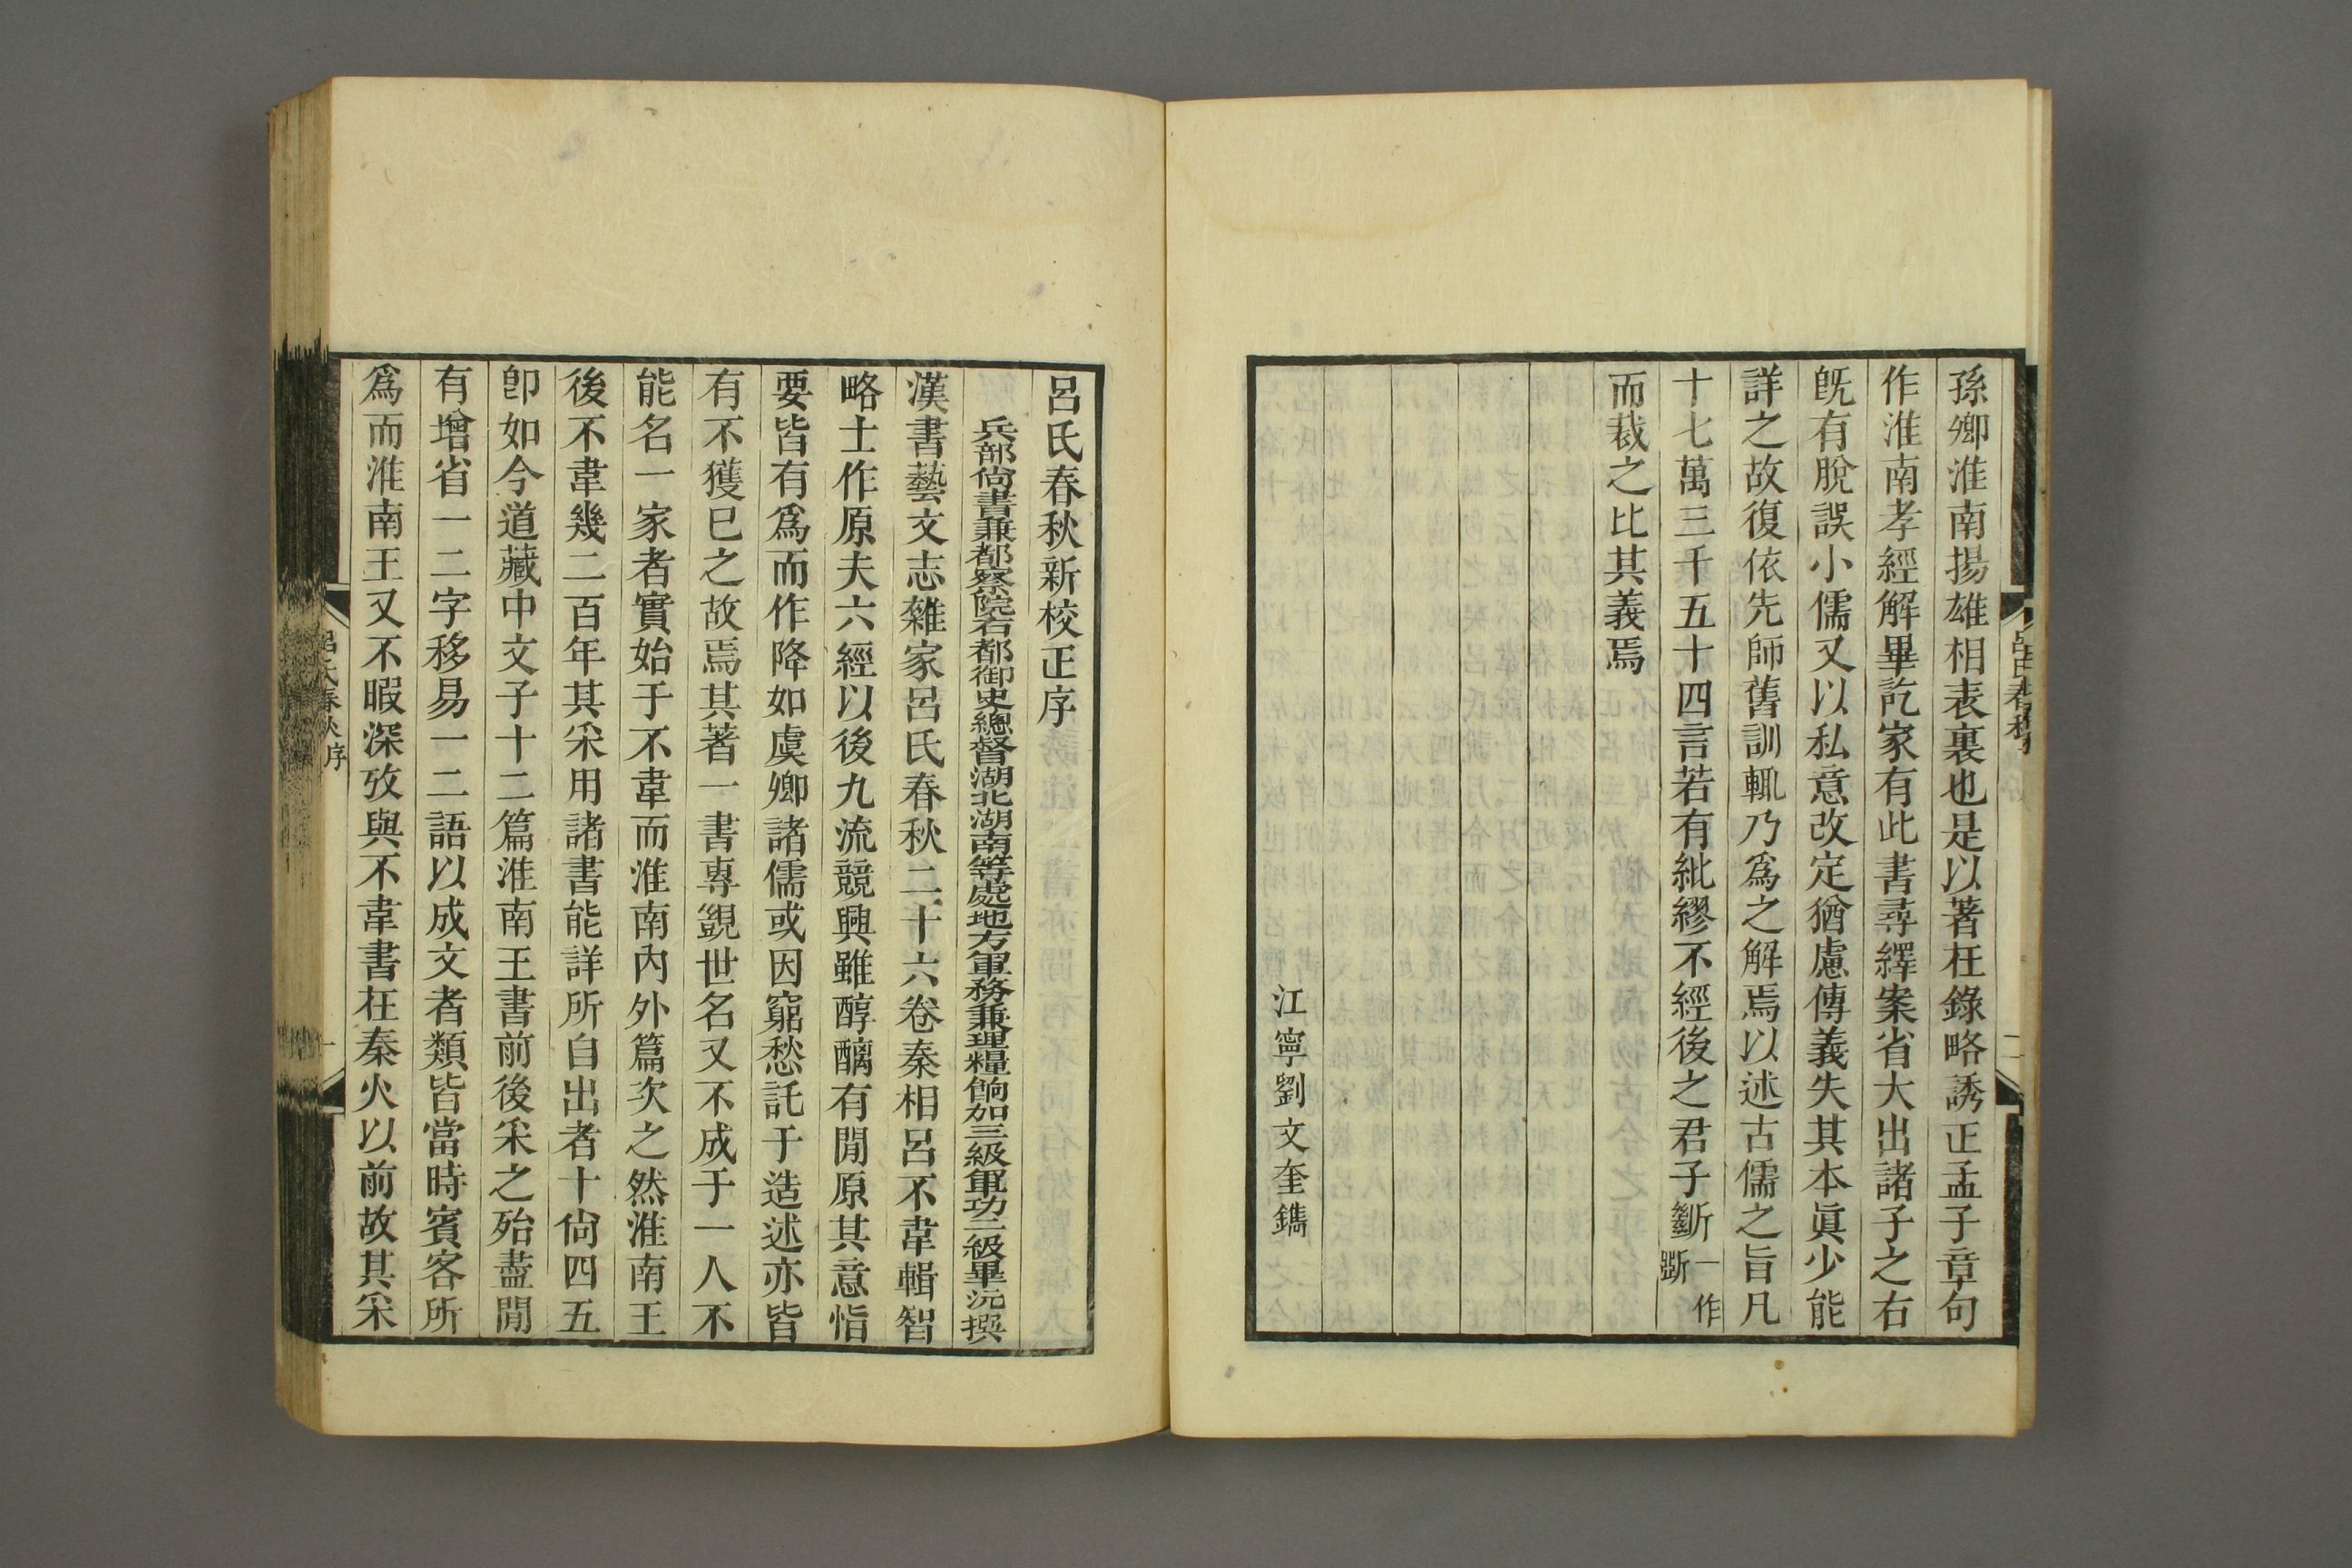 孫卿淮南揚雄相表裏也是以著在錄略誘正孟子章句
作淮南孝經解畢訖家有此書尋繹案省大出諸子之右
旣有脫誤小儒又以私意改定猶慮傳義失其本眞少能
詳之故復依先師舊訓輒乃爲之解焉以述古儒之旨凡
十七萬三千五十四言若有紕繆不經後之君子斷一作斷
而裁之比其義焉
江寧劉文奎鐫
呂氏春秋新校正序
兵部尙書兼都察院右都御史總督湖北湖南等處地方軍務兼理糧餉加三級軍功二級畢沅撰
漢書藝文志雜家呂氏春秋二十六卷秦相呂不韋輯智
略士作原夫六經以後九流競興雖醇醨有閒原其意恉
要皆有爲而作降如虞卿諸儒或因窮愁託于造述亦皆
有不獲已之故焉其著一書專覬世名又不成于一人不
能名一家者實始于不韋而淮南內外篇次之然淮南王
後不韋幾二百年其采用諸書能詳所自出者十尙四五
卽如今道藏中文子十二篇淮南王書前後采之殆盡閒
有增省一二字移易一二語以成文者類皆當時賓客所
爲而淮南王又不暇深攷與不韋書在秦火以前故其采
呂氏春秋序
一